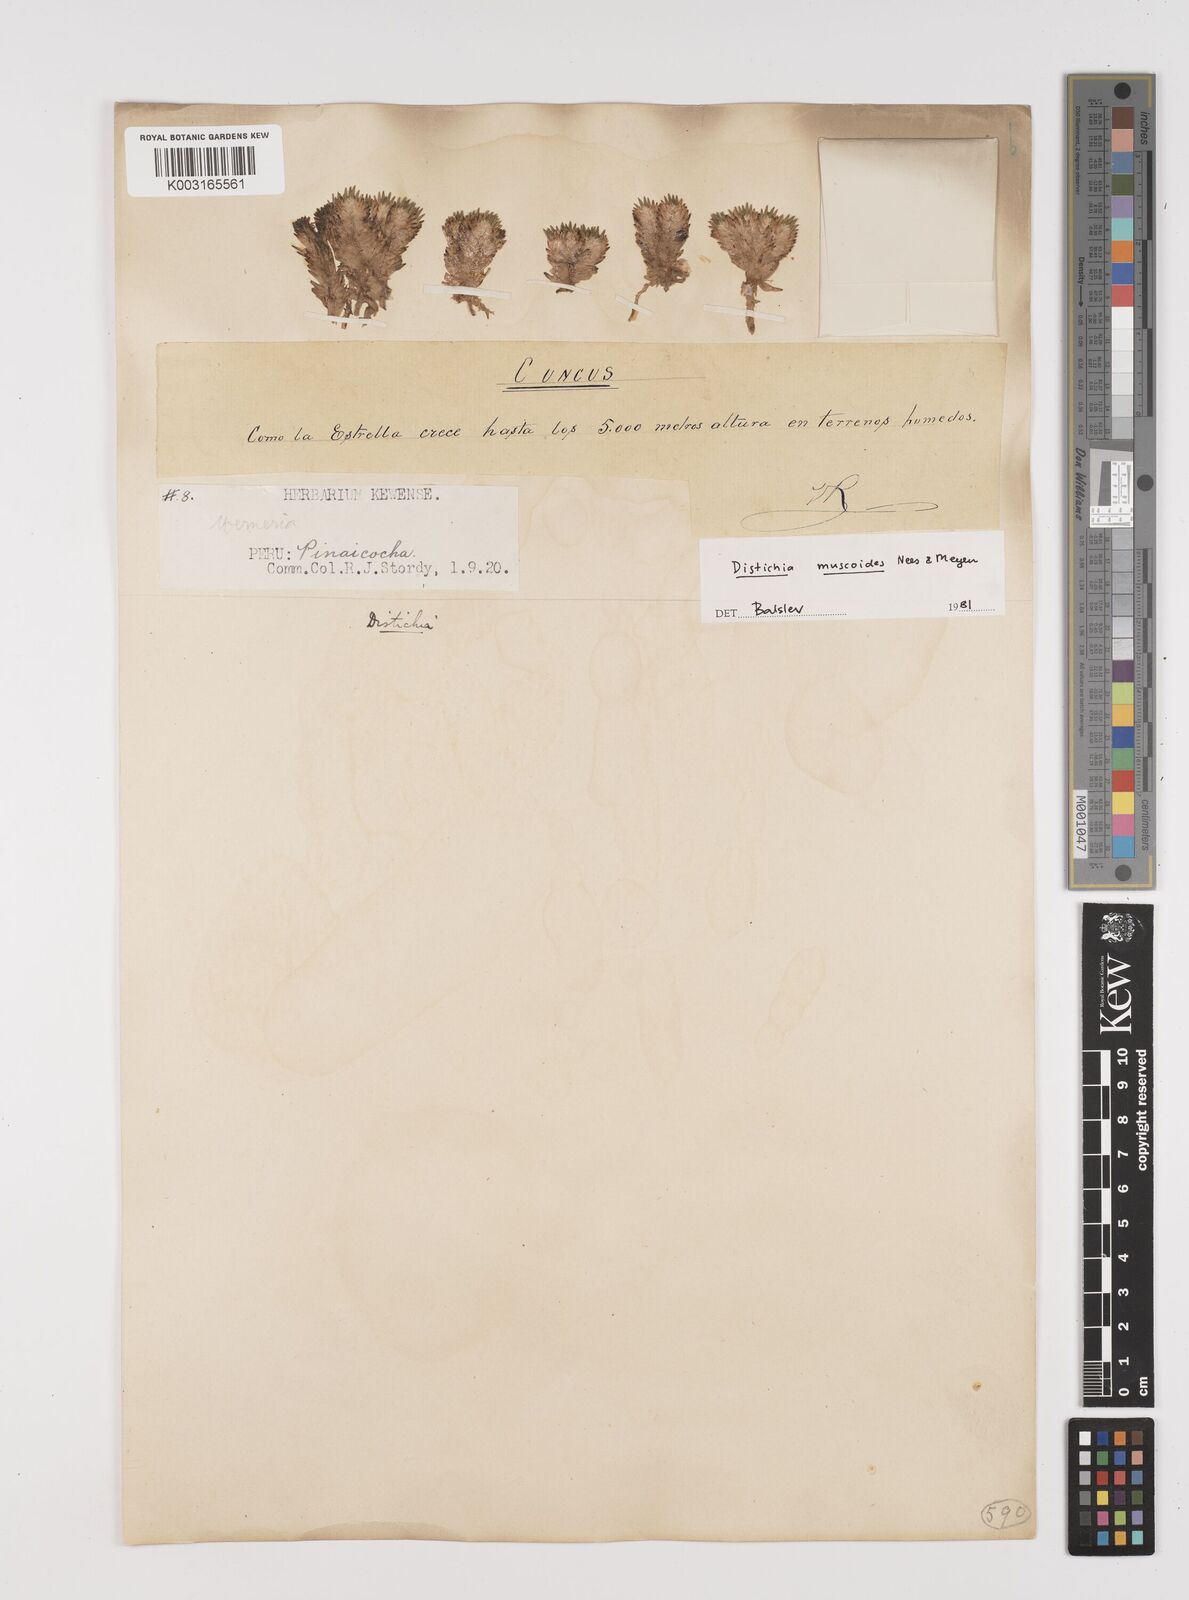 ROYAL BOTANIC GARDENS KEW
K003165561
CUNCUS
Como la Estrella crece hasta los 5.000 metros altura en terrenos humedos.
#8. HERBARIUM KEWENSE.
Werneria
PERU: Pinaicocha.
Comm.Col.R.J.Stordy, 1.9.20.
Distichia muscoides Nees & Meyen
DET. Balslev 1981
Distichia
590
inches
centimeters
Density
Don Williams
M001047
Royal Botanic Gardens
Kew
copyright reserved
0 1 2 3 4 5 6 7 8 9 10
cm